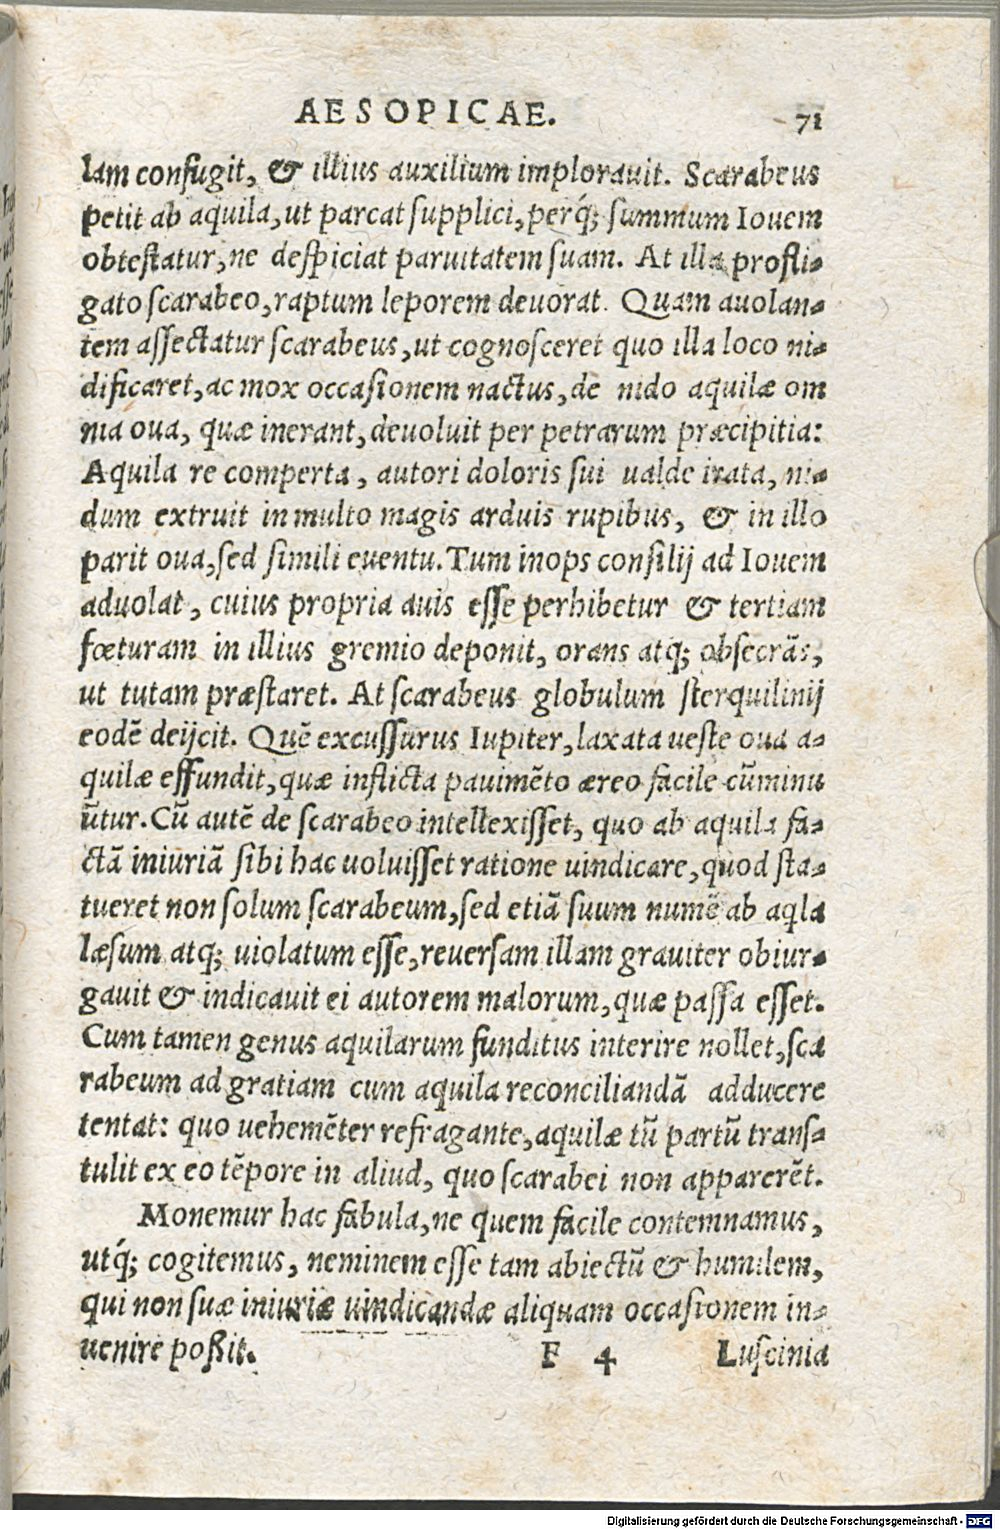 AESOPICAE. 71
lam confugit, & illius auxilium implorauit. Scarabeus
petit ab aquila, ut parcat supplici, perq́; summum Iouem
obtestatur, ne despiciat paruitatem suam. At illa profli-
gato scarabeo, raptum leporem deuorat. Quam auolan-
tem assectatur scarabeus, ut cognosceret quo illa loco ni-
dificaret, ac mox occasionem nactus, de nido aquilæ om
nia oua, quæ inerant, deuoluit per petrarum præcipitia:
Aquila re comperta, autori doloris sui ualde irata, ni-
dum extruit in multo magis arduis rupibus, & in illo
parit oua, sed simili euentu. Tum inops consilij ad Iouem
aduolat, cuius propria auis esse perhibetur & tertiam
fœturam in illius gremio deponit, orans atq; obsecrãs,
ut tutam præstaret. At scarabeus globulum sterquilinij
eodẽ deijcit. Quẽ excussurus Iupiter, laxata ueste oua a-
quilæ effundit, quæ inflicta pauimẽto æreo facile cũminu
ũtur. Cũ autẽ de scarabeo intellexisset, quo ab aquila fa-
ctã iniuriã sibi hac uoluisset ratione uindicare, quod sta-
tueret non solum scarabeum, sed etiã suum numẽ ab aqla
læsum atq; uiolatum esse, reuersam illam grauiter obiur-
gauit & indicauit ei autorem malorum, quæ passa esset.
Cum tamen genus aquilarum funditus interire nollet, sca
rabeum ad gratiam cum aquila reconciliandã adducere
tentat: quo uehemẽter refragante, aquilæ tũ partũ trans-
tulit ex eo tẽpore in aliud, quo scarabei non apparerẽt.
Monemur hac fabula, ne quem facile contemnamus,
utq́; cogitemus, neminem esse tam abiectũ & humilem,
qui non suæ iniuriæ uindicandæ aliquam occasionem in-
uenire poßit. F 4 Luscinia
Digitalisierung gefördert durch die Deutsche Forschungsgemeinschaft - DFG